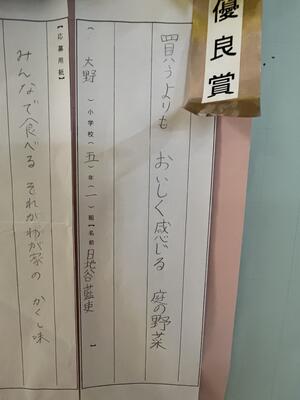 優良賞
買うよりも おいしく感じる 庭の野菜
( 大野 )小学校(五)年(一)組【名前 日地谷藍吏 】
【応募用紙】
みんなで食べる それがわが家の かくし味